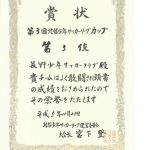 賞状
第3回北信少年サッカーリーグカップ
第3位
長野少年サッカークラブ殿
貴チームはよく敢闘され頭書
の成績をおさめられたので
その栄誉をたたえます
平成5年10月10日
宮下登